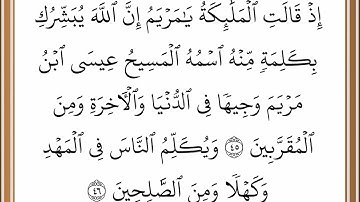 إِذۡ قَالَتِ ٱلۡمَلَٰٓئِكَةُ يَٰمَرۡيَمُ إِنَّ ٱللَّهَ يُبَشِّرُكِ
بِكَلِمَةٖ مِّنۡهُ ٱسۡمُهُ ٱلۡمَسِيحُ عِيسَى ٱبۡنُ
مَرۡيَمَ وَجِيهٗا فِي ٱلدُّنۡيَا وَٱلۡأٓخِرَةِ وَمِنَ
ٱلۡمُقَرَّبِينَ ٤٥ وَيُكَلِّمُ ٱلنَّاسَ فِي ٱلۡمَهۡدِ
وَكَهۡلٗا وَمِنَ ٱلصَّٰلِحِينَ ٤٦